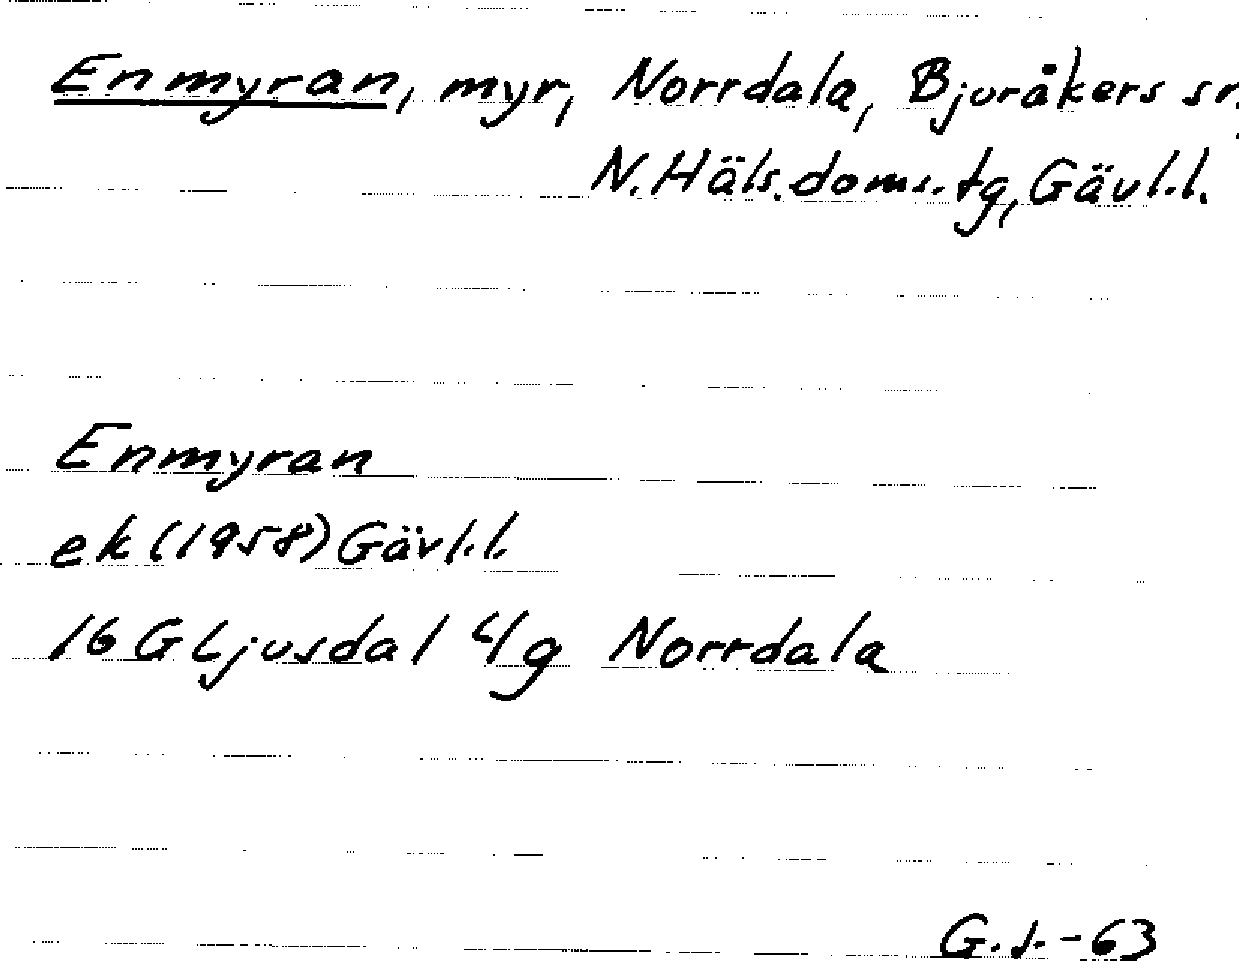 Enmyran, myr, Norrdala, Bjuråkers sn,
N. Häls. doms. tg, Gävl.l.
Enmyran
ek (1958) Gävl.l.
16 G Ljusdal 4/g Norrdala
G.J.-63